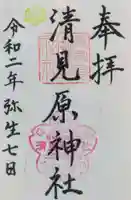 奉拝
清見原神社
令和二年弥生七日